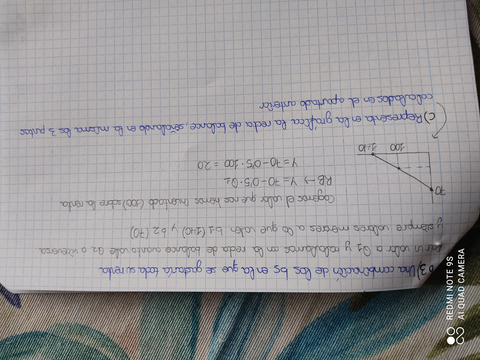 b3) Una combinación de los bs en la que se gastaría toda su renta.
valor a Q1 y calculamos en la recta de balance cuanto vale Q2 o viceversa
y siempre valores menores a lo que valen b1 (140) y b2 (70)
Cogemos el valor que nos hemos inventado (100) sobre la renta
RB → Y = 70 - 0'5 · Q1
Y = 70 - 0'5 · 100 = 20
70
100
140
c) Representa en la gráfica la recta de balance, señalando en la misma los 3 puntos
calculados en el apartado anterior
REDMI NOTE 9S
AI QUAD CAMERA